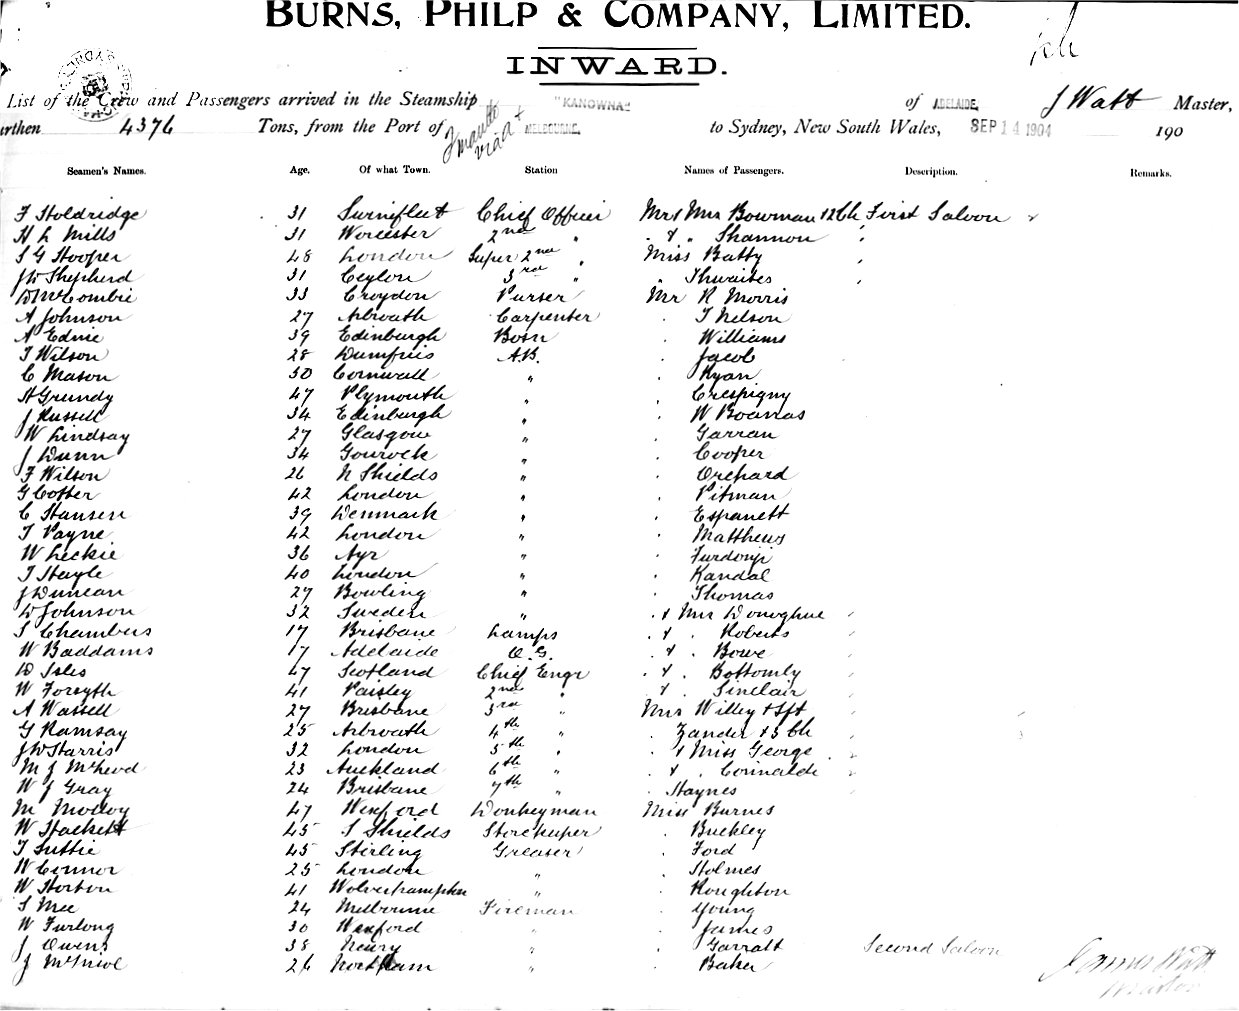 BURNS, PHILP & COMPANY, LIMITED.
INWARD.
List of the Crew and Passengers arrived in the Steamship "KANOWNA" of ADELAIDE, J Watt Master,
urthen 4376 Tons, from the Port of Fremantle via A + MELBOURNE. to Sydney, New South Wales, SEP 14 1904 190
Seamen's Names. Age. Of what Town. Station Names of Passengers. Description. Remarks.
F Holdridge 31 Chief Officer Mr & Mrs Bowman First Saloon
H L Mills 31 Worcester 2nd " " & " Shannon
S G Hooper 48 London Super 2nd " Miss Batty
J W Shepherd 31 Ceylon 3rd " " Thwaites
D McCombie 33 Croydon Purser Mr R Morris
A Johnson 27 Arbroath Carpenter " T Nelson
A Edine 39 Edinburgh Bosn " Williams
T Wilson 28 Dumfries A.B. " Jacob
C Mason 30 Cornwall " " Ryan
A Grundy 47 Plymouth " " Crespigny
J Russell 34 Edinburgh " " W
W Lindsay 27 Glasgow " " Garran
J Dunn 34 Gourock " " Cooper
F Wilson 26 N Shields " " Orchard
G Cotter 42 London " " Pitman
C Hansen 39 Denmark " " Espanett
T Payne 42 London " " Matthews
W Leckie 36 Ayr " "
T Hayle 40 London " " Kandal
J Duncan 27 Bowling " " Thomas
D Johnson 32 Sweden " " & Mrs Donoghue
S Chambers 17 Brisbane Lamps " & " Roberts
W Baddams 17 Adelaide O.S. " & " Bowe
D Isles 47 Scotland Chief Engr " & " Bottomly
W Forsyth 41 Paisley 2nd " " & " Sinclair
A Wassell 27 Brisbane 3rd " Mrs Willey
G Ramsay 25 Arbroath 4th " " Zander & 3 Ch
J W Harris 32 London 5th " " & Miss George
M J McLeod 23 Auckland 6th " " & " Corinaldi
W J Gray 24 Brisbane 7th " " Haynes
M Molloy 47 Wexford Donkeyman Miss Burnes
W Hackett 45 S Shields Storekeeper " Buckley
T Suttie 45 Stirling Greaser " Ford
W Connor 25 London " " Holmes
W Horton 41 Wolverhampton " " Houghton
S Mee 24 Melbourne Fireman " Young
W Furlong 30 Wexford " " James
J Owens 38 Newry " " Garratt Second Saloon
J McNiel 26 " " Baker
James Watt
Master